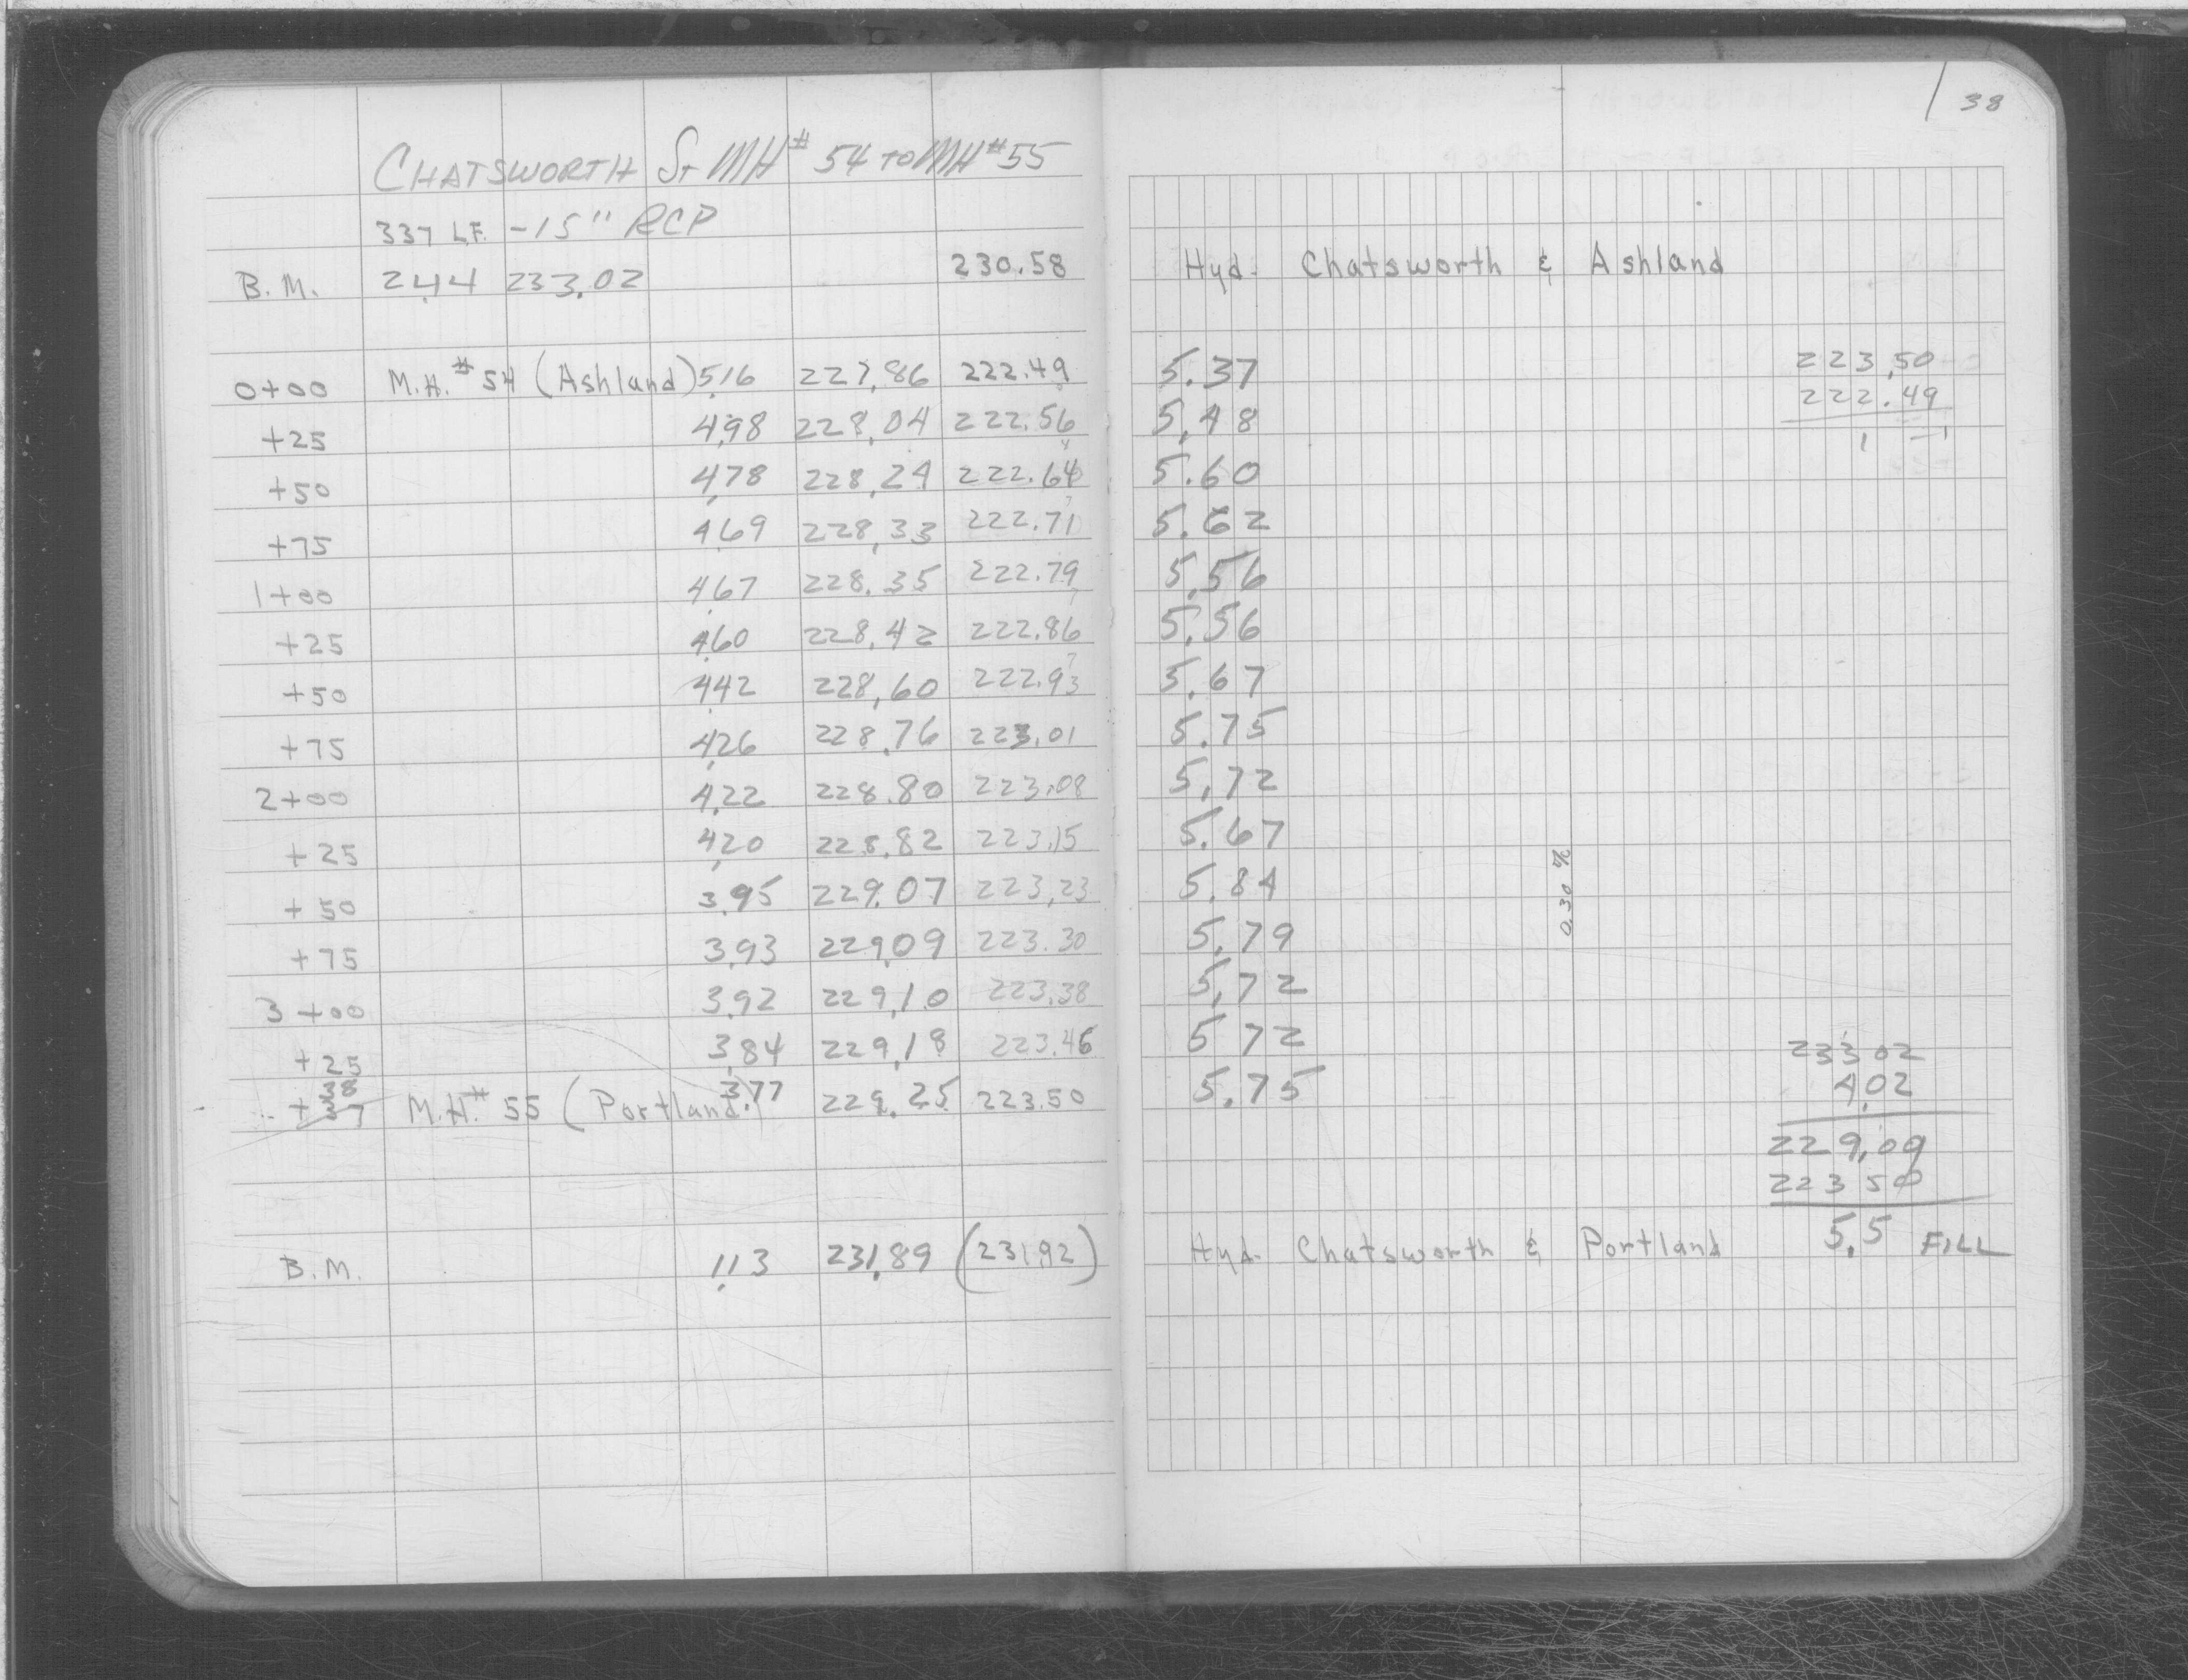 38
CHATSWORTH ST MH# 54 TO MH #55
337 L.F. - 15" RCP
B.M. 2.44 233.02 230.58 Hyd. Chatsworth & Ashland
0+00 M.H.# 54 (Ashland) 5.16 227.86 222.49 5.37 223.50
+25 4.98 228.04 222.56 5.48 222.49
+50 4.78 228.24 222.64 5.60
+75 4.69 228.33 222.71 5.62
1+00 4.67 228.35 222.79 5.56
+25 4.60 228.42 222.86 5.56
+50 4.42 228.60 222.93 5.67
+75 4.26 228.76 223.01 5.75
2+00 4.22 228.80 223.08 5.72
+25 4.20 228.82 223.15 5.67
+50 3.95 229.07 223.23 5.84 0.30 %
+75 3.93 229.09 223.30 5.79
3+00 3.92 229.10 223.38 5.72
+25 3.84 229.18 223.46 5 72 233 02
38 4.02
+37 M.H.# 55 (Portland) 3.77 229.25 223.50 5.75
229.09
223 50
B.M. 1.13 231.89 (231.92) Hyd. Chatsworth & Portland 5.5 FILL